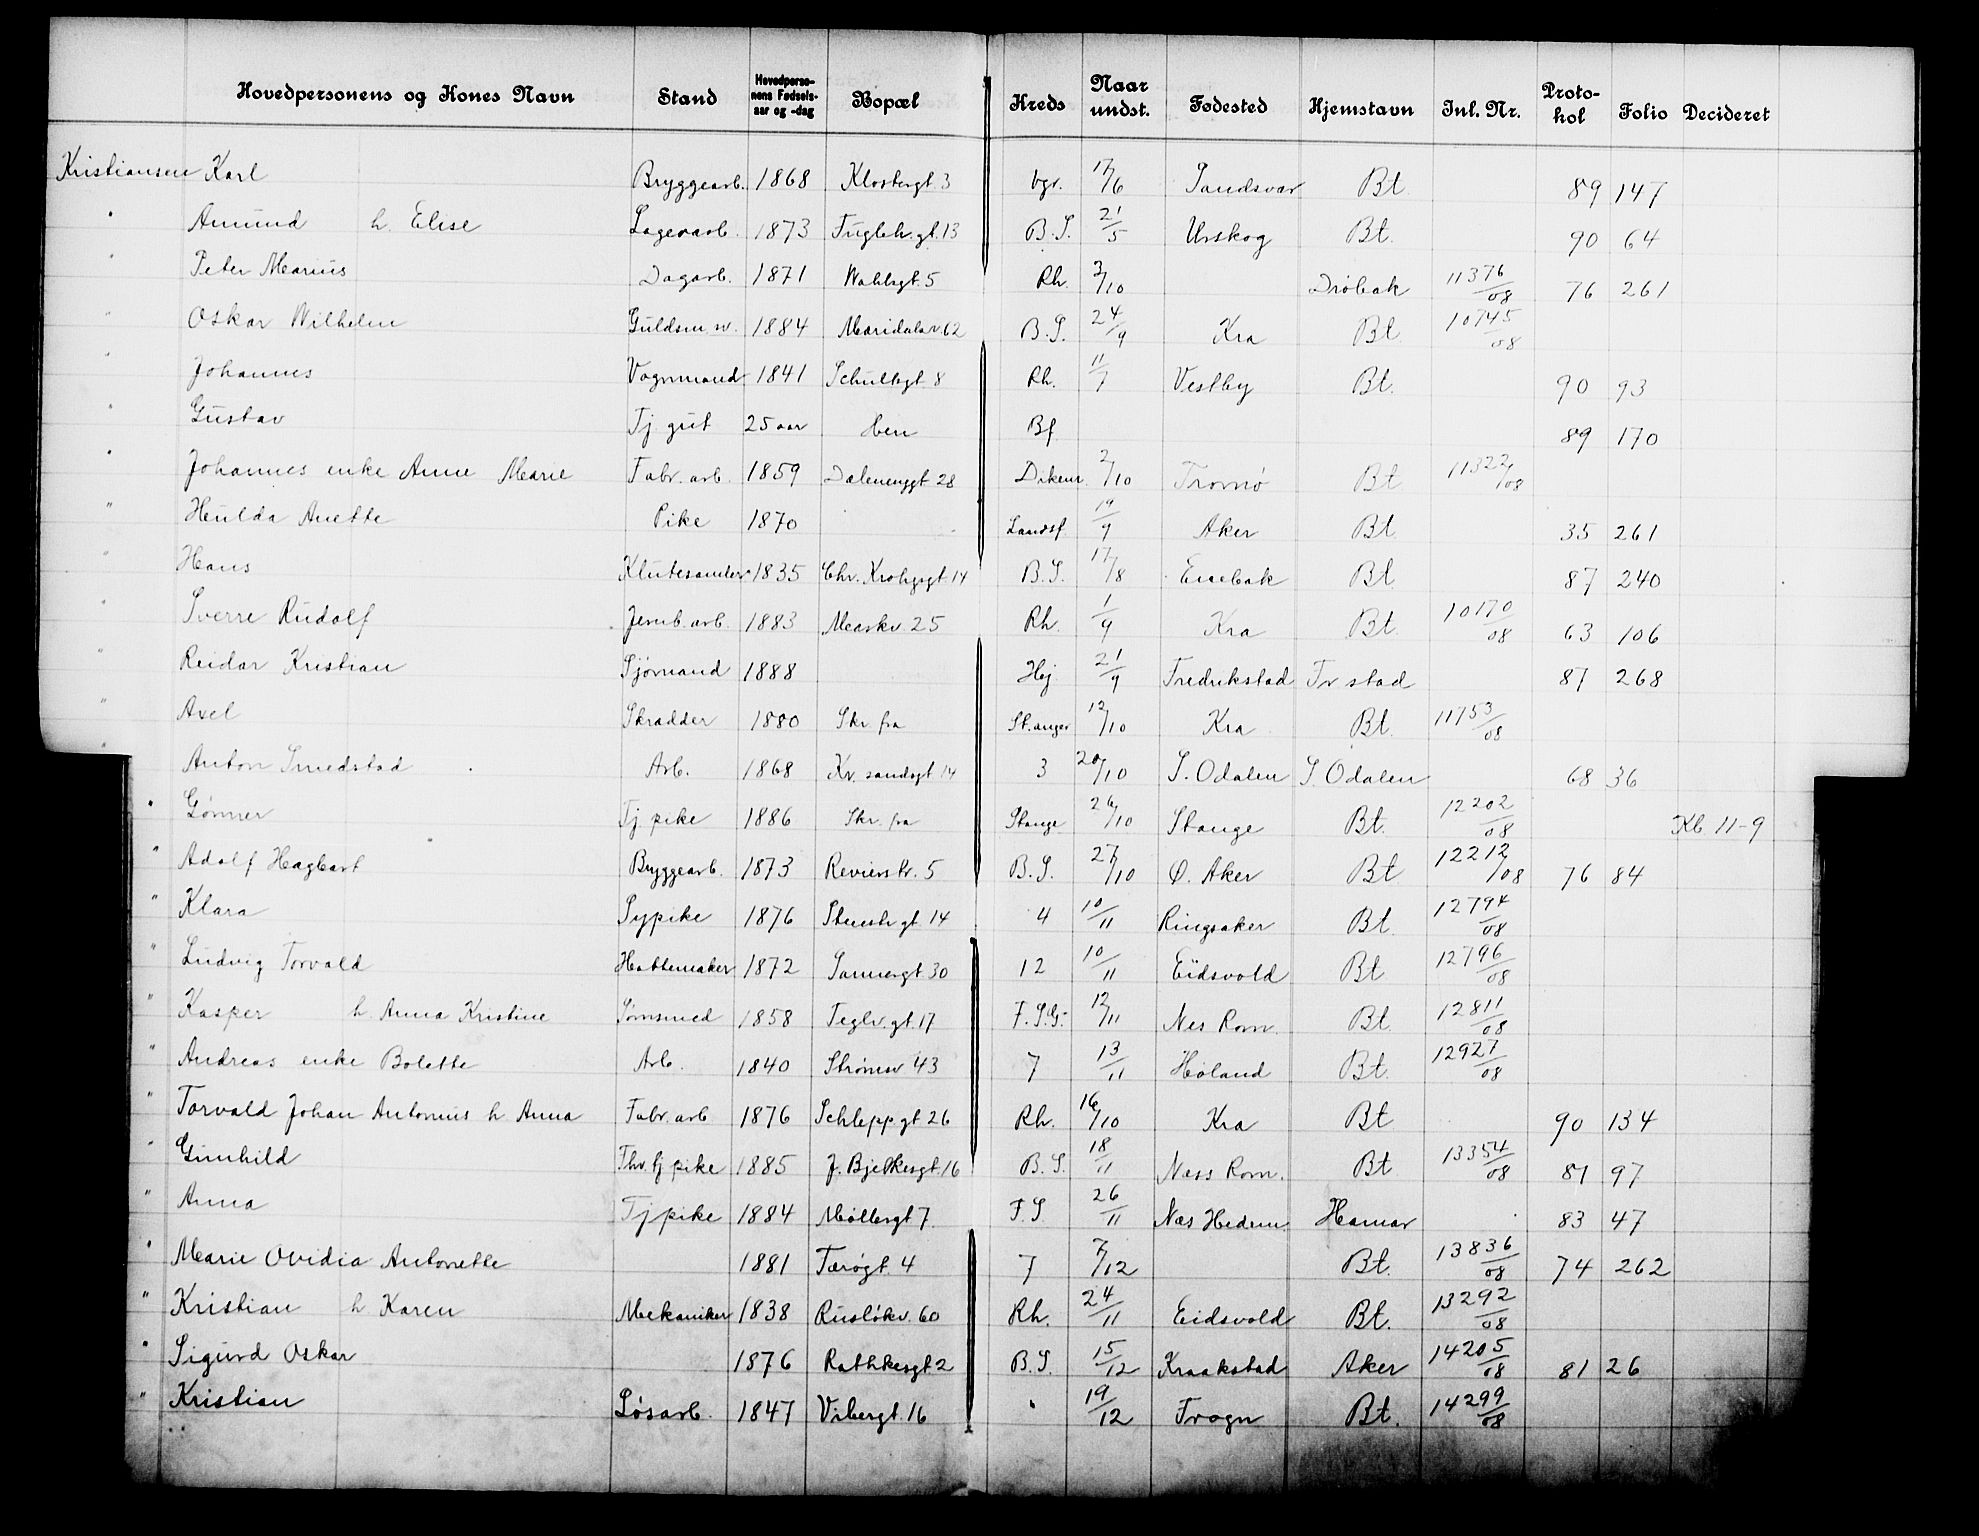 Hovedpersonens og Kones Navn Stand Hovedpersonens Fødselsaar og -dag Bopæl Kreds Naar undst. Fødested Hjemstavn Inl. Nr. Protokol Folio Decideret
Kristiansen Karl Bryggearb. 1868 Klostergt. 3 Vgr. 17/6 Sandsvær Bt. 89 147
" Amund h. Elise Lagerarb. 1873 Fugleh. gt. 13 B.S. 21/5 Urskog Bt. 90 64
" Peter Marius Dagarb. 1871 Wahlsgt. 5 Rh. 3/10 Drøbak 11376/08 76 261
" Oskar Wilhelm Guldsm. sv. 1884 Maridalsv. 62 B.S. 24/9 Kra Bt. 10745/08
" Johannes Vognmand 1841 Schultzgt 8 Rh. 11/7 Vestby Bt. 90 93
" Gustav Tj. gut 25 aar Hen Bf. 89 170
" Johannes enke Anne Marie Fabr. arb. 1859 Dælenenggt 28 Dikem. 2/10 Tromsø Bt 11322/08
" Hulda Anette Pike 1870 Landsf. 19/9 Aker Bt. 35 261
" Hans Klutesamler 1835 Chr. Krohgsgt. 14 B.S. 17/8 Enebak Bt 87 240
" Sverre Rudolf Jernb. arb. 1883 Markv. 25 Rh. 1/9 Kra Bt. 10170/08 63 106
" Reidar Kristian Sjømand 1888 Hej 21/9 Fredrikstad Fr stad 87 268
" Axel Skrædder 1880 Skr. fra Stanger 12/10 Kra Bt. 11753/08
" Anton Smedstad Arb. 1868 Kr. sandsgt 14 3 20/10 S. Odalen S. Odalen 68 36
" Gønner Tj. pike 1886 Skr. fra Stange 26/10 Stange Bt. 12202/08 Kb 11-9
" Adolf Hagbart Bryggearb. 1873 Revierstr. 5 B.S. 27/10 Ø. Aker Bt 12212/08 76 84
" Klara Sypike 1876 Stenstr gt 14 4 10/11 Ringsaker Bt. 12794/08
" Ludvig Torvald Hattemaker 1872 Sannergt 30 12 10/11 Eidsvold Bt 12796/08
" Kasper h. Anna Kristine Sømsmed 1858 Teglv. gt. 17 F.S.G. 12/11 Nes Rom. Bt. 12811/08
" Andreas enke Bolette Arb. 1840 Strømsv 43 7 13/11 Høland Bt. 12927/08
" Torvald Johan Antonius h. Anna Fabr. arb 1876 Schlepp. gt 26 Rh. 16/10 Kra Bt 90 134
" Gunhild Thv. tj pike 1885 J. Bjelkesgt. 16 B.S. 18/11 Næss Rom. Bt 13354/08 81 97
" Anna Tj pike 1884 Møllergt 7 F.S. 26/11 Næs Hedem. Hamar 83 47
" Marie Ovidia Antonette 1881 Færøgt. 4 7 7/12 Bt. 13836/08 74 262
" Kristian h Karen Mekaniker 1838 Rusløkv. 60 Rh. 24/11 Eidsvold Bt. 13292/08
" Sigurd Oskar 1876 Rathkesgt 2 B.S. 15/12 Kraakstad Aker 14205/08 81 26
" Kristian Løsarb. 1847 Vibergt. 16 " 19/12 Frogn Bt. 14299/08